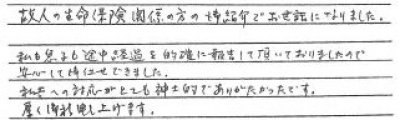 故人の生命保険関係の方の御紹介でお世話になりました。
私も息子も途中経過を的確に報告して頂いておりましたので
安心して御任せできました。
私共への対応がとても紳士的でありがたかったです。
厚く御礼申し上げます。